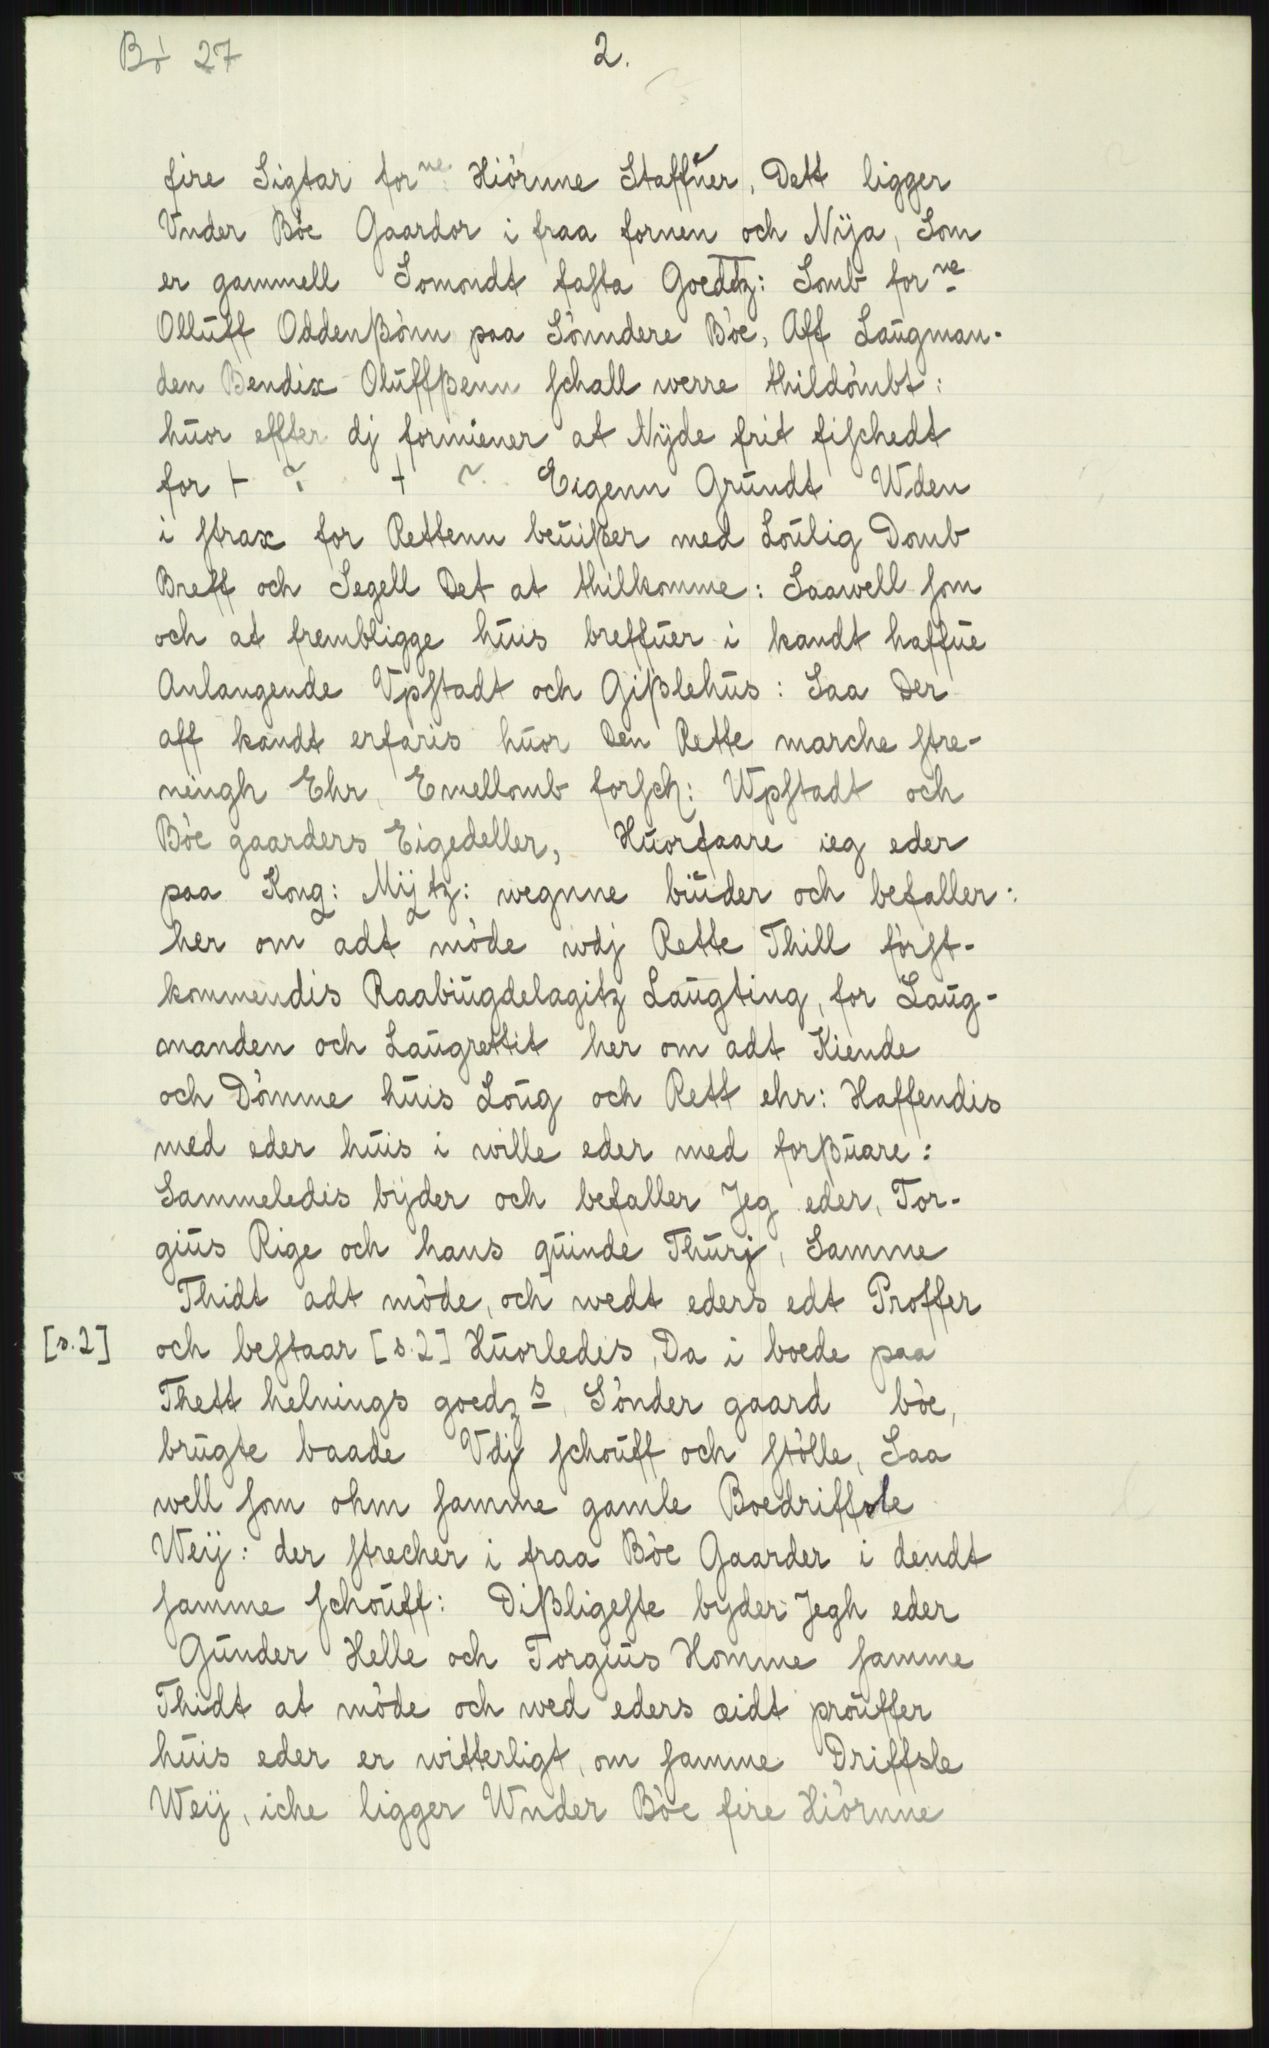 Bö 27
2.
fire Sigtar for ne: Hiörnne Staffuer, Dett ligger
Vnder Böe Gaardor i fraa fornen och Nÿa, Som
er gammell Somondt fasta Goedtz: Somb for ne
Olluff Oddenßönn paa Sönndere Böe, Aff Laugman-
den Bendix Oluffßenn schall werre thildömbt:
huor effter dj formiener at Nÿde frit fischedt
for + ~ + ~ Eigenn Grundt Wden
i strax for Rettenn beuißer med Loulig Domb
Breff och Segell Det at thilkomme: Saawell som
och at frembligge huis breffuer i kandt haffue
Anlangende Vpstadt och Gißlehus: Saa Der
aff kandt erfaris huor Den Rette marche stre-
ningh Ehr, Emellomb forsch: Wpstadt och
Böe gaarders Eigedeller, Huorfaare ieg eder
paa Kong: Mÿtz: wegnne biuder och befaller:
her om adt möde wdj Rette Thill först-
kommendis Raabiugdelagitz Laugting, for Laug-
manden och Laugrettit her om adt Kiende
och Dömme huis Loug och Rett ehr: Haffendis
med eder huis i wille eder med forßuare:
Sammeledis bÿder och befaller Jeg eder, Tor-
gius Rige och hans quinde Thurj, Samme
Thidt adt möde, och wedt eders edt Proffer
[s.2] och bestaar [s.2] Huorledis, Da i boede paa
Thett helnings goedz s, Sönder gaard böe,
brugte baade Vdj schouff och stölle, Saa
well som ohm samme gamle Boedriffsle
Weÿ: der strecher i fraa Böe Gaarder i dendt
samme schouff: Dißligeste byder Jegh eder
Gunder Helle och Torgius Homme samme
Thidt at möde och wed eders æidt prouffer
huis eder er witterligt, om samme Driffsle
Weÿ, iche ligger Wnder Böe fire Hiörnne